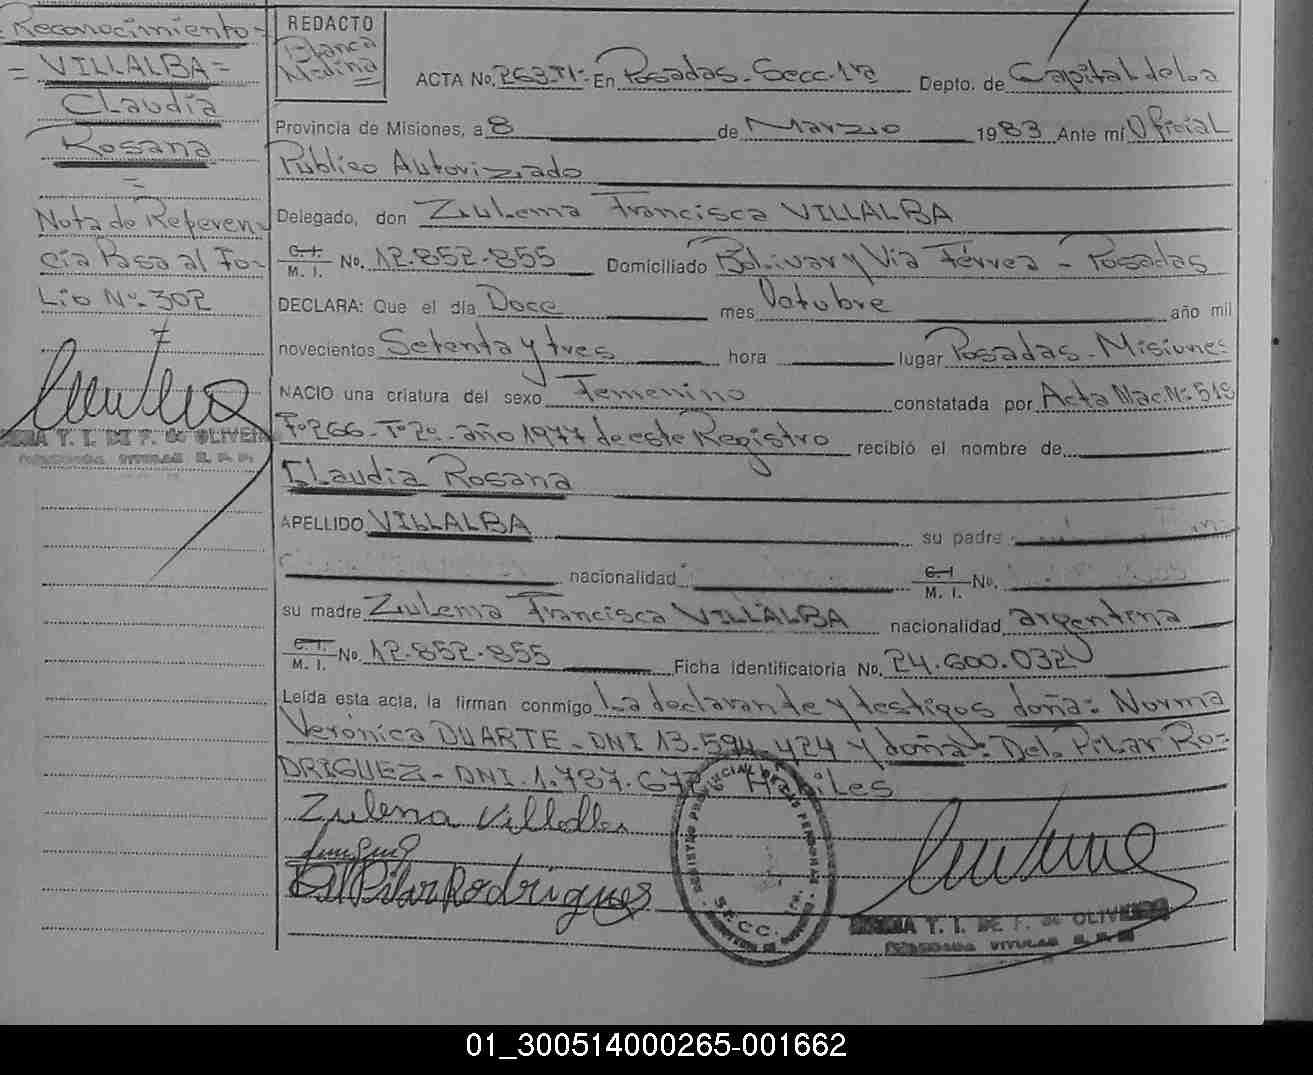 =Reconocimiento=
= VILLALBA =
Claudia
Rosana
=
Nota de Referen-
cia Pasa al Fo-
lio Nº 302
REDACTO
Blanca
Medina
ACTA No. 263-TI- En Posadas-Secc-1ra Depto. de Capital de la
Provincia de Misiones, a 8 de Marzo 1983 Ante mí Oficial
Público Autorizado
Delegado, don Zulema Francisca VILLALBA
C. I. M. I. No. 12.852.855 Domiciliado Bolivar y Via Férrea - Posadas
DECLARA: Que el día Doce mes Octubre año mil
novecientos Setenta y tres hora lugar Posadas-Misiones
NACIO una criatura del sexo Femenino constatada por Acta Nac Nº 519
Fº 266-Tº 2º-año 1977 de este Registro recibió el nombre de
Claudia Rosana
APELLIDO VILLALBA su padre
nacionalidad C. I. M. I. No.
su madre Zulema Francisca VILLALBA nacionalidad argentina
C. I. M. I. No. 12.852.855 Ficha Identificatoria No. 24.600.032
Leída esta acta, la firman conmigo La declarante y testigos doña: Norma
Verónica DUARTE-DNI 13.594.424 y doña: Del Pilar RO-
DRIGUEZ-DNI.1.787.672 Hábiles
Zulema Villalba
Del Pilar Rodrigues
REGISTRO PROVINCIAL DE LAS PERSONAS
SECC. 1ra.
Y. I. DE F. de OLIVEIRA
TITULAR R. P. P.
Y. I. DE F. de OLIVEIRA
TITULAR R. P. P.
01_300514000265-001662